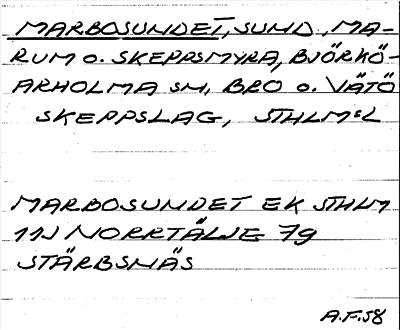 MARBOSUNDET, SUND, MA-
RUM O. SKEPPSMYRA, BJÖRKÖ-
ARHOLMA SN, BRO O. VÄTÖ
SKEPPSLAG, STHLMSL
MARBOSUNDET EK STHLM
11J NORRTÄLJE 79
STÄRBSNÄS
A.F.58